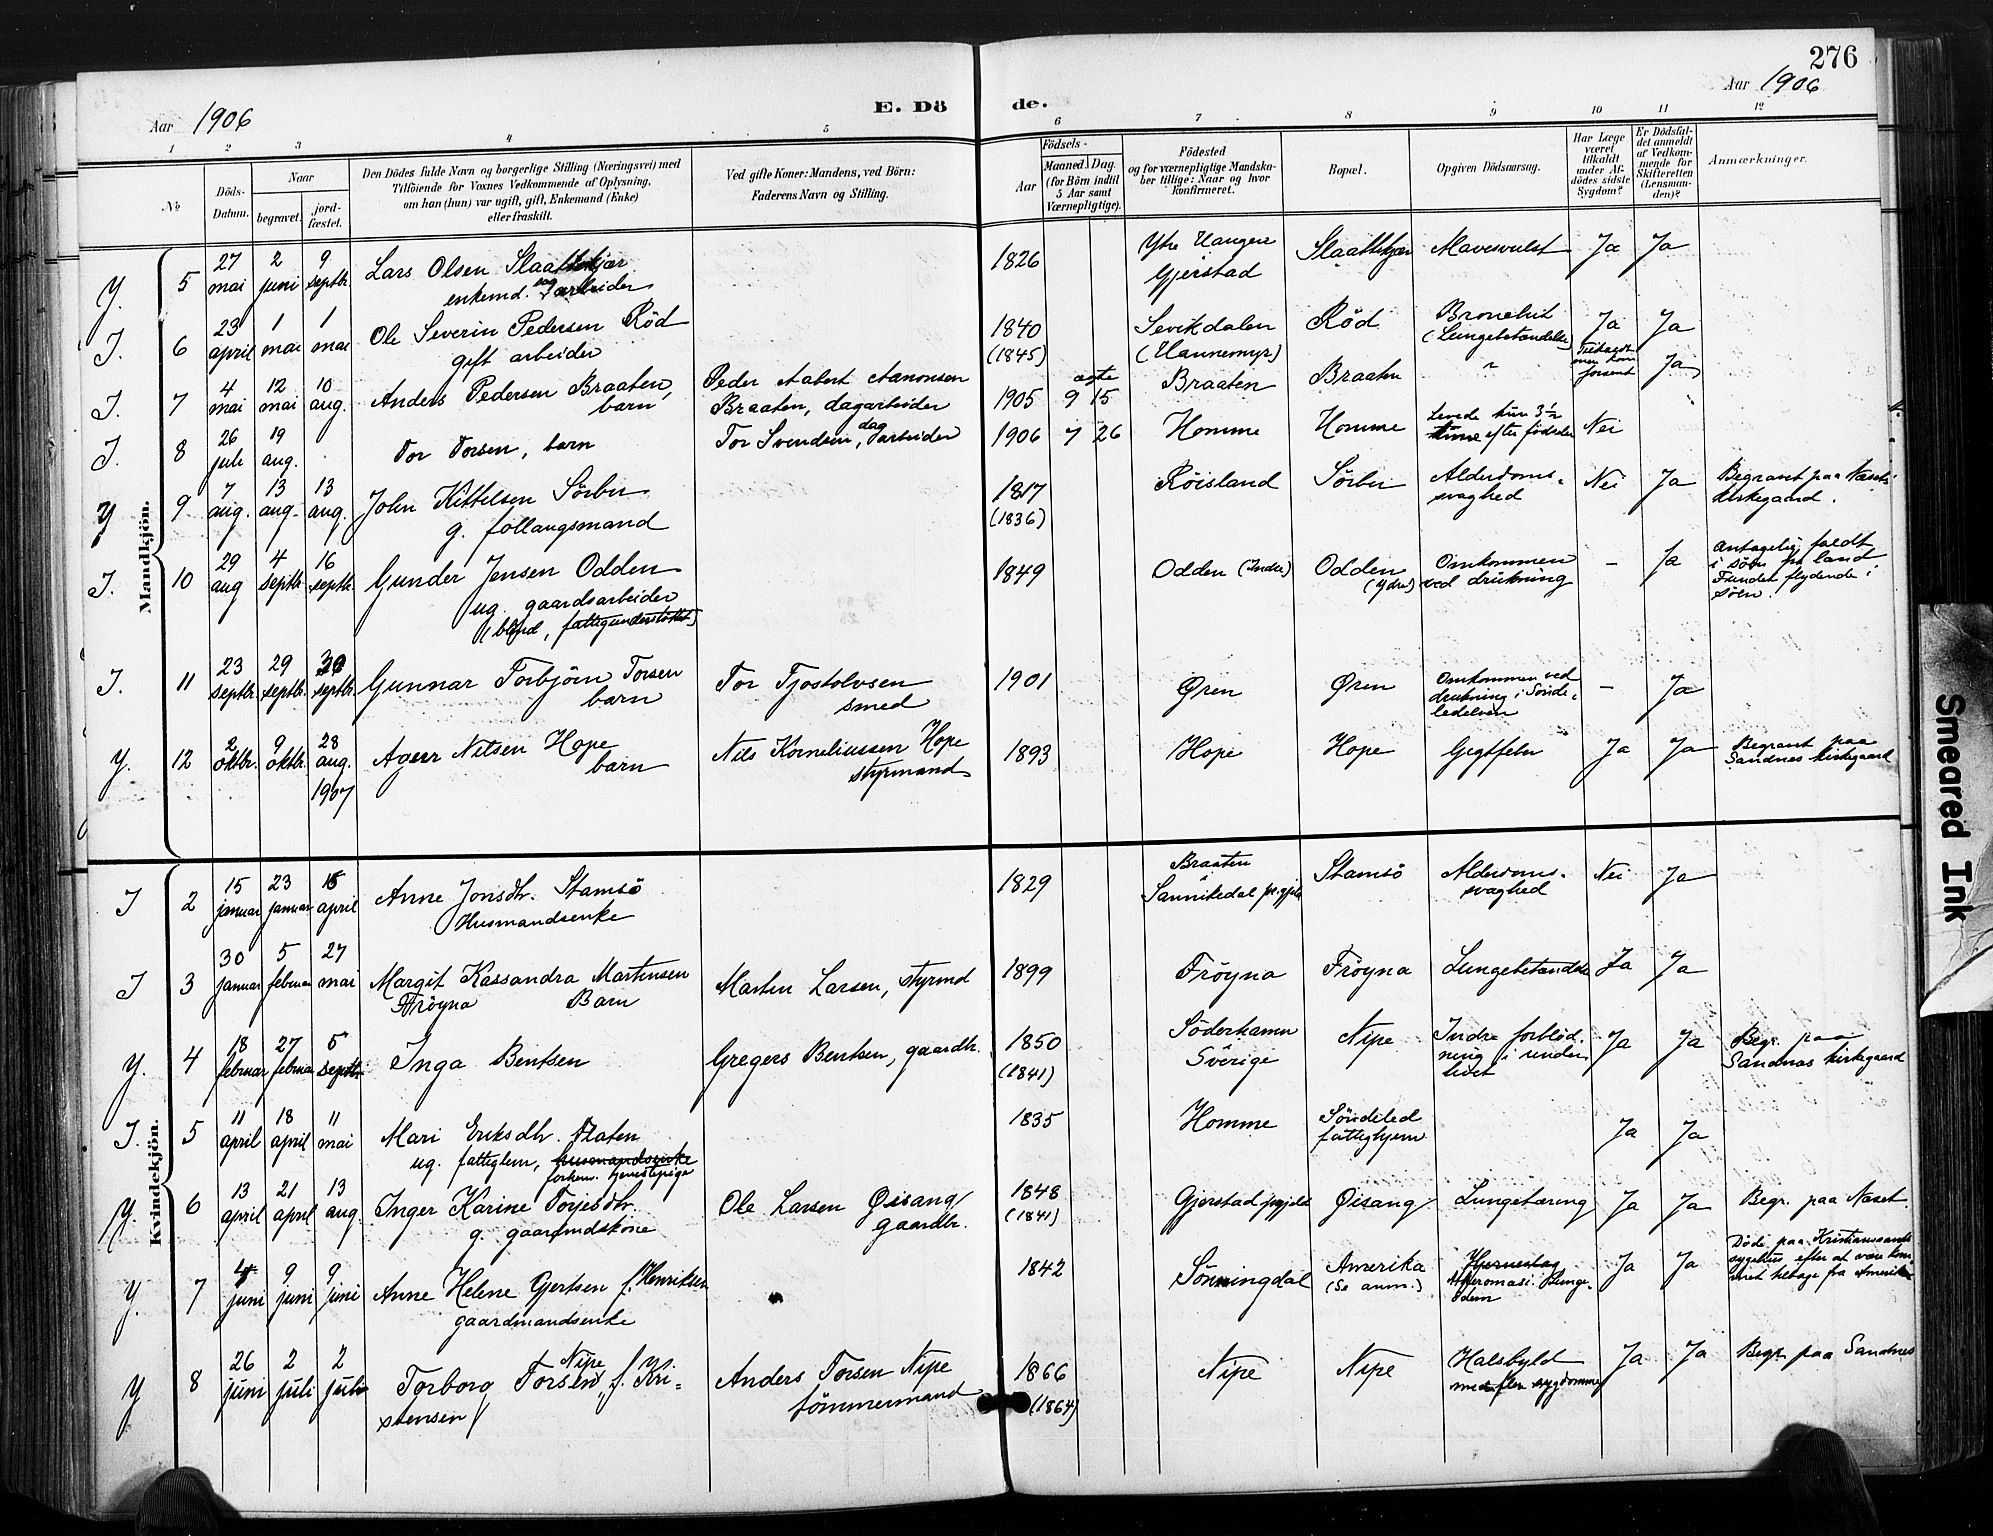 276
Aar 1906
E. Dö de.
Aar 1906
1 2 3 4 5 6 7 8 9 10 11 12
№
Döds-
Datum.
Naar
begravet.
jord-
fæstet.
Den Dödes fulde Navn og borgerlige Stilling (Næringsvei) med
Tilföiende for Voxnes Vedkommende af Oplysning,
om han (hun) var ugift, gift, Enkemand (Enke)
eller fraskilt.
Ved gifte Koner: Mandens, ved Börn:
Faderens Navn og Stilling.
Födsels-
Aar
Maaned Dag.
(for Börn indtil
5 Aar samt
Værnepligtige).
Födested
og for værnepligtige Mandska-
ber tillige: Naar og hvor
konfirmeret.
Bopæl.
Opgiven Dödsaarsag.
Har Læge
været
tilkaldt
under Af-
dödes sidste
Sygdom?
Er Dödsfal-
det anmeldt
af Vedkom-
mende for
Skifteretten
(Lensman-
den)?
Anmærkninger.
Mandkjön.
Y. 5 27 mai 2 juni 9 septbr. Lars Olsen Slaattekjær
enkemd. dagarbeider
1826 Ytre Haugen
Gjerstad Slaattekjær Mavesvulst Ja Ja
I. 6 23 april 1 mai 1 mai Ole Severin Pedersen Röd
gift arbeider
1840
(1845) Sevikdalen
(Hannemyr) Röd Bronchit
(Lungebetændelse) Ja Ja
I. 7 4 mai 12 mai 10 aug. Anders Pedersen Braaten,
barn
Peder Aabert Aanonsen
Braaten, dagarbeider
1905 9 15 Braaten Braaten " Tilkaldt
men kom
forsent Ja
I. 8 26 juli 19 aug. Tor Torsen, barn
Tor Svendsen, dagarbeider
1906 7 26 Homme Homme Levede kun 3½
time efter födselen Nei
Y 9 7 aug. 13 aug. 13 aug. John Kittelsen Sörbu
g. follaugsmand
1817
(1836) Röisland Sörbu Alderdoms-
svaghed Nei Ja Begravet paa Næset
kirkegaard.
I. 10 29 aug 4 septbr. 16 septbr. Gunder Jensen Odden
ug. gaardsarbeider
(blind, fattigunderstöttet)
1849 Odden (Indre) Odden
(Ydre) Omkommen
ved drukning - Ja Antagelig faldt
i söen fra land.
Fundet flydende i
söen.
I. 11 23 septbr. 29 septbr. 30 septbr. Gunnar Torbjörn Torsen
barn
Tor Tjostolvsen
smed
1901 Øren Øren Omkommen ved
drukning i Sönde-
ledelven - Ja
Y. 12 2 oktbr. 9 oktbr. 28 aug. 1907 Agerr Nilsen Hope
barn
Nils Korneliussen Hope
styrmand
1893 Hope Hope Gigtfeber Ja Ja Begravet paa
Sandnes kirkegaard
Kvindekjön.
I 2 15 januar 23 januar 16 april Anne Jonsdtr. Stamsö
Husmandsenke
1829 Braaten
i
Sannikedal prgjeld Stamsö Alderdoms-
svaghed Nei Ja
I 3 30 januar 5 februar 27 mai Margit Kassandra Martinsen
Fröyna Barn
Martin Larsen, styrmd
1899 Fröyna Fröyna Lungebetændelse Ja Ja
Y. 4 18 februar 27 februar 5 septbr Inga Bentsen
Gregers Bentsen, gaardbr.
1850
(1841) Söderhamn
Sverige Nipe Indre forblöd-
ning i under-
livet Ja Ja Begr. paa
Sandnes kirkegaard
I. 5 11 april 18 april 11 mai Mari Eriksdtr. Platen
ug. fattiglem, husmandsenke
forhenv. tjenestepige
1835 Homme Söndeled
fattighjem Ja Ja
Y. 6 13 april 21 april 13 aug. Inger Karine Torjesdtr.
g. gaardmdskone
Ole Larsen Øisang
gaardbr.
1848
(1841) Gjerstad prgjeld Øisang Lungetæring Ja Ja Begr. paa Næset.
Y. 7 4 juni 9 juni 9 juni Anne Helene Gjertsen f. Henriksen
gaardmandsenke
1842 Sönningdal Amerika
(Se anm.) Hjerneslag
Atheromasi. Lunge-
ödem Ja Ja Döde paa Kristianssands
sygehus efter at være kom-
met tilbage fra Amerika
Y 8 26 juni 2 juli 2 juli Torborg Torsen Nipe, f. Kri-
stensen
Anders Torsen Nipe
tömmermand
1866
(1864) Nipe Nipe Halsbyld
med flere sygdomme Ja Ja Begr. paa Sandnes
Smeared Ink